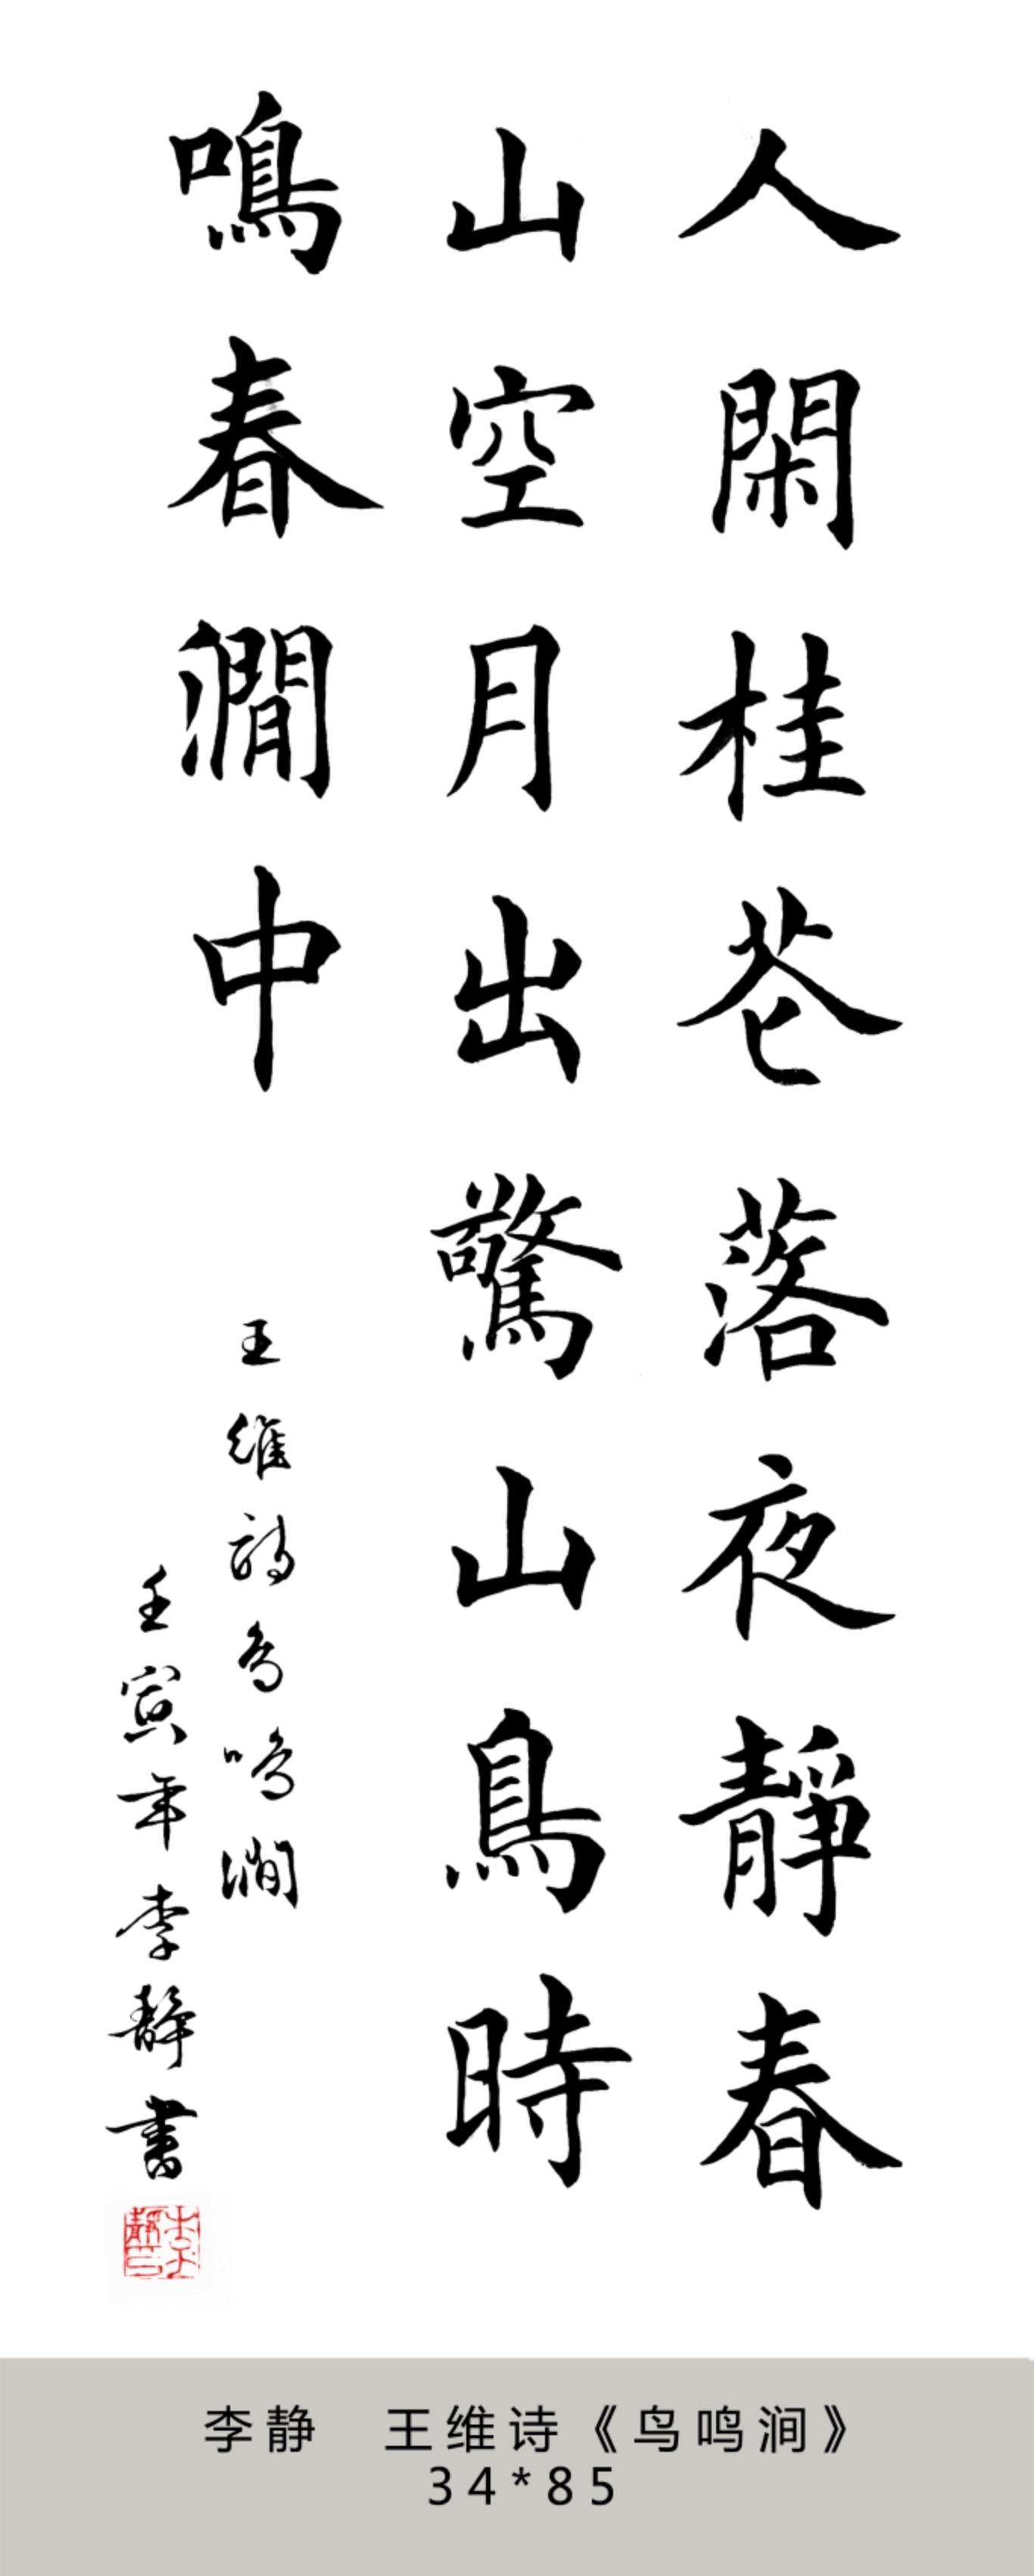 人閑桂花落夜靜春
山空月出驚山鳥時
鳴春澗中
王維詩鳥鳴澗
壬寅年李靜書
李靜印
李静 王维诗《鸟鸣涧》
34*85